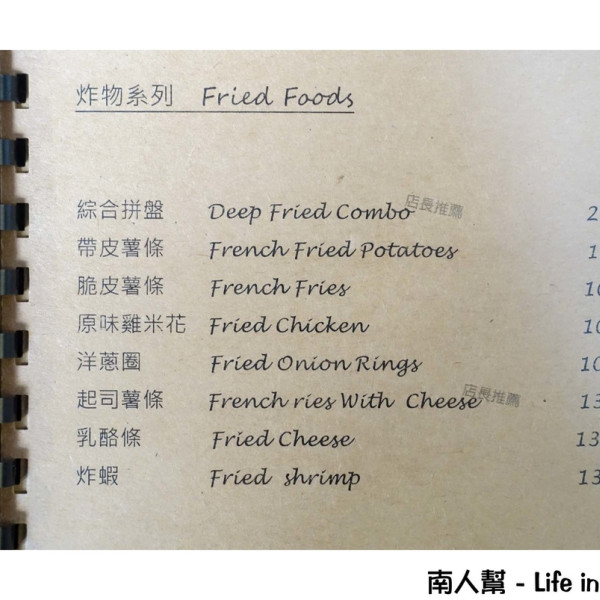 炸物系列 Fried Foods
綜合拼盤 Deep Fried Combo 店長推薦 2
帶皮薯條 French Fried Potatoes 1
脆皮薯條 French Fries 10
原味雞米花 Fried Chicken 10
洋蔥圈 Fried Onion Rings 10
起司薯條 French ries With Cheese 店長推薦 13
乳酪條 Fried Cheese 13
炸蝦 Fried shrimp 13
南人幫 - Life in